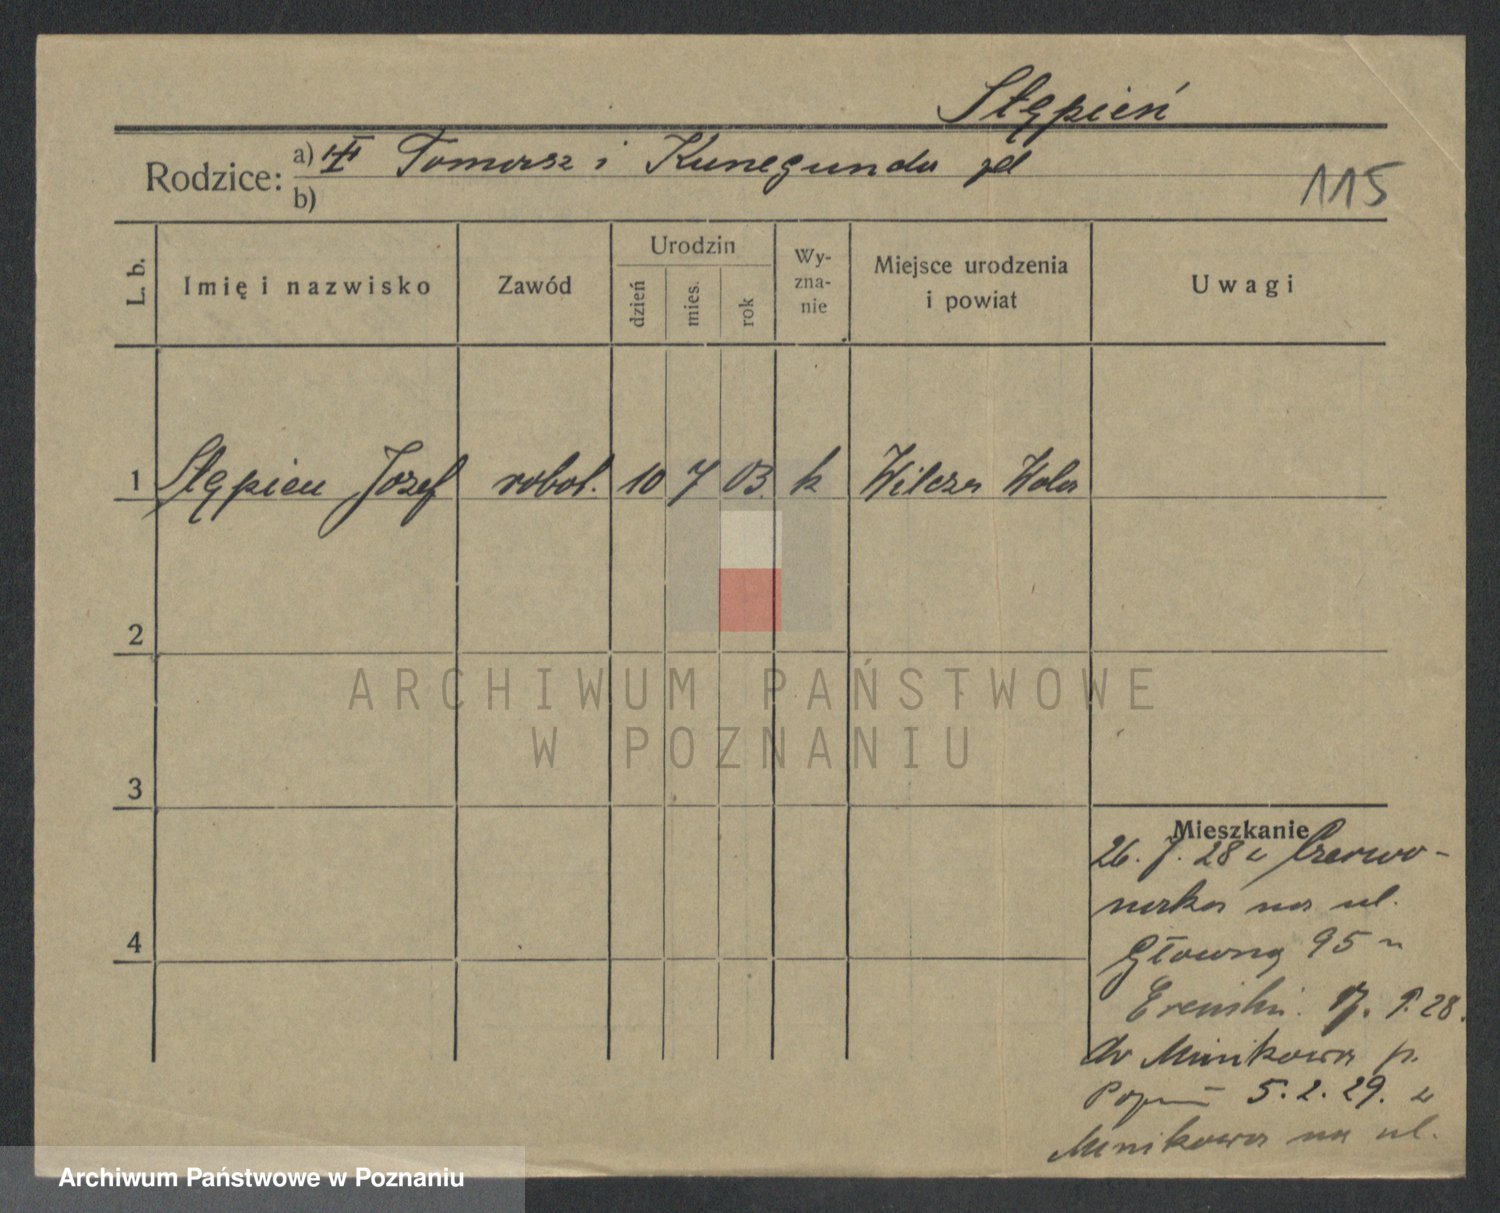 Stępień
Rodzice: a) Tomasz i Kunegunda
b)
115
L. b.
Imię i nazwisko
Zawód
Urodzin
dzień
mies.
rok
Wy-
zna-
nie
Miejsce urodzenia
i powiat
Uwagi
1 Stępień Józef robot. 10 7 03. k Wilcza Wola
2
3
4
Mieszkanie
26. 7. 28 z Czerwo-
naka na ul.
Główną 95
17. 9. 28.
do Minikowa p.
5. 2. 29. z
Minikowa na ul.
ARCHIWUM PAŃSTWOWE
W POZNANIU
Archiwum Państwowe w Poznaniu